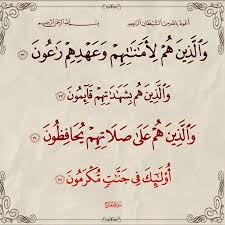 أعوذ بالله من الشيطان الرجيم بسم الله الرحمن الرحيم
وَالَّذِينَ هُمْ لِأَمَانَاتِهِمْ وَعَهْدِهِمْ رَاعُونَ ٣٢
وَالَّذِينَ هُمْ بِشَهَادَاتِهِمْ قَائِمُونَ ٣٣
وَالَّذِينَ هُمْ عَلَى صَلَاتِهِمْ يُحَافِظُونَ ٣٤
أُولَئِكَ فِي جَنَّاتٍ مُكْرَمُونَ ٣٥